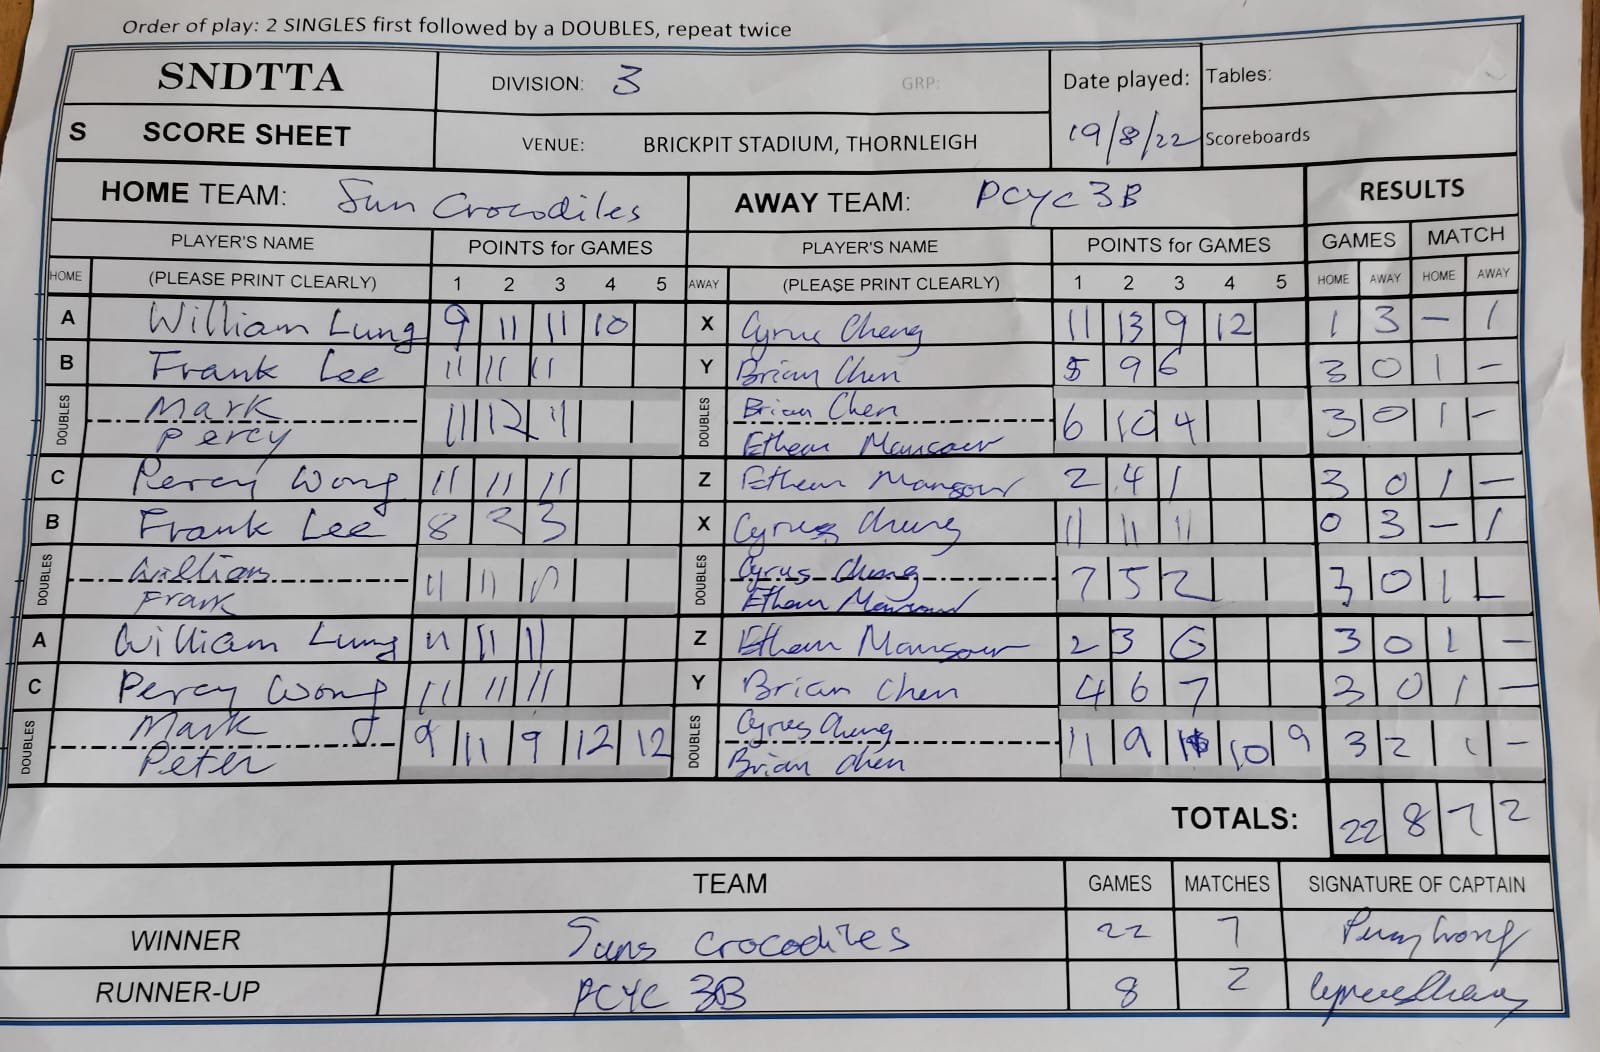 Order of play: 2 SINGLES first followed by a DOUBLES, repeat twice
SNDTTA DIVISION: 3 GRP: Date played: Tables:
S SCORE SHEET VENUE: BRICKPIT STADIUM, THORNLEIGH 19/8/22 Scoreboards
HOME TEAM: Sun Crocodiles AWAY TEAM: PCYC 3B RESULTS
PLAYER'S NAME POINTS for GAMES PLAYER'S NAME POINTS for GAMES GAMES MATCH
HOME (PLEASE PRINT CLEARLY) 1 2 3 4 5 AWAY (PLEASE PRINT CLEARLY) 1 2 3 4 5 HOME AWAY HOME AWAY
A William Lung 9 11 11 10 X Cyrus Cheng 11 13 9 12 1 3 – 1
B Frank Lee 11 11 11 Y Brian Chen 5 9 6 3 0 1 –
DOUBLES Mark 11 12 11 DOUBLES Brian Chen 6 10 4 3 0 1 –
Percy Ethem Mansour
C Percy Wong 11 11 11 Z Ethem Mansour 2 4 1 3 0 1 –
B Frank Lee 8 2 3 X Cyrus Cheng 11 11 11 0 3 – 1
DOUBLES William 11 11 11 DOUBLES Cyrus Cheng 7 5 2 3 0 1 –
Frank Ethem Mansour
A William Lung 11 11 11 Z Ethem Mansour 2 3 6 3 0 1 –
C Percy Wong 11 11 11 Y Brian Chen 4 6 7 3 0 1 –
DOUBLES Mark 9 11 9 12 12 DOUBLES Cyrus Cheng 11 9 11 10 9 3 2 1 –
Peter Brian Chen
TOTALS: 22 8 7 2
TEAM GAMES MATCHES SIGNATURE OF CAPTAIN
WINNER Suns Crocodiles 22 7 Percy Wong
RUNNER-UP PCYC 3B 8 2